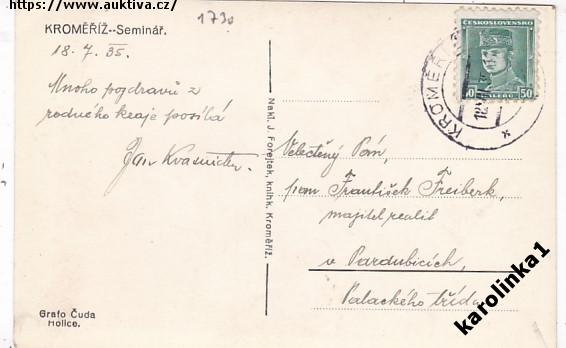 https://www.auktiva.cz/
KROMĚŘÍŽ--Seminář.
18. 7. 35.
1730
Mnoho pozdravů z
rodného kraje posílá
Jan
Nakl. J. Forejtek, knihk. Kroměříž.
ČESKOSLOVENSKO
50 HALÉŘŮ 50
KROMĚŘ
Velectěný Pán,
pan František Freiberk,
majitel realit
v Pardubicích,
Palackého třída
Grafo Čuda
Holice.
karolinka1